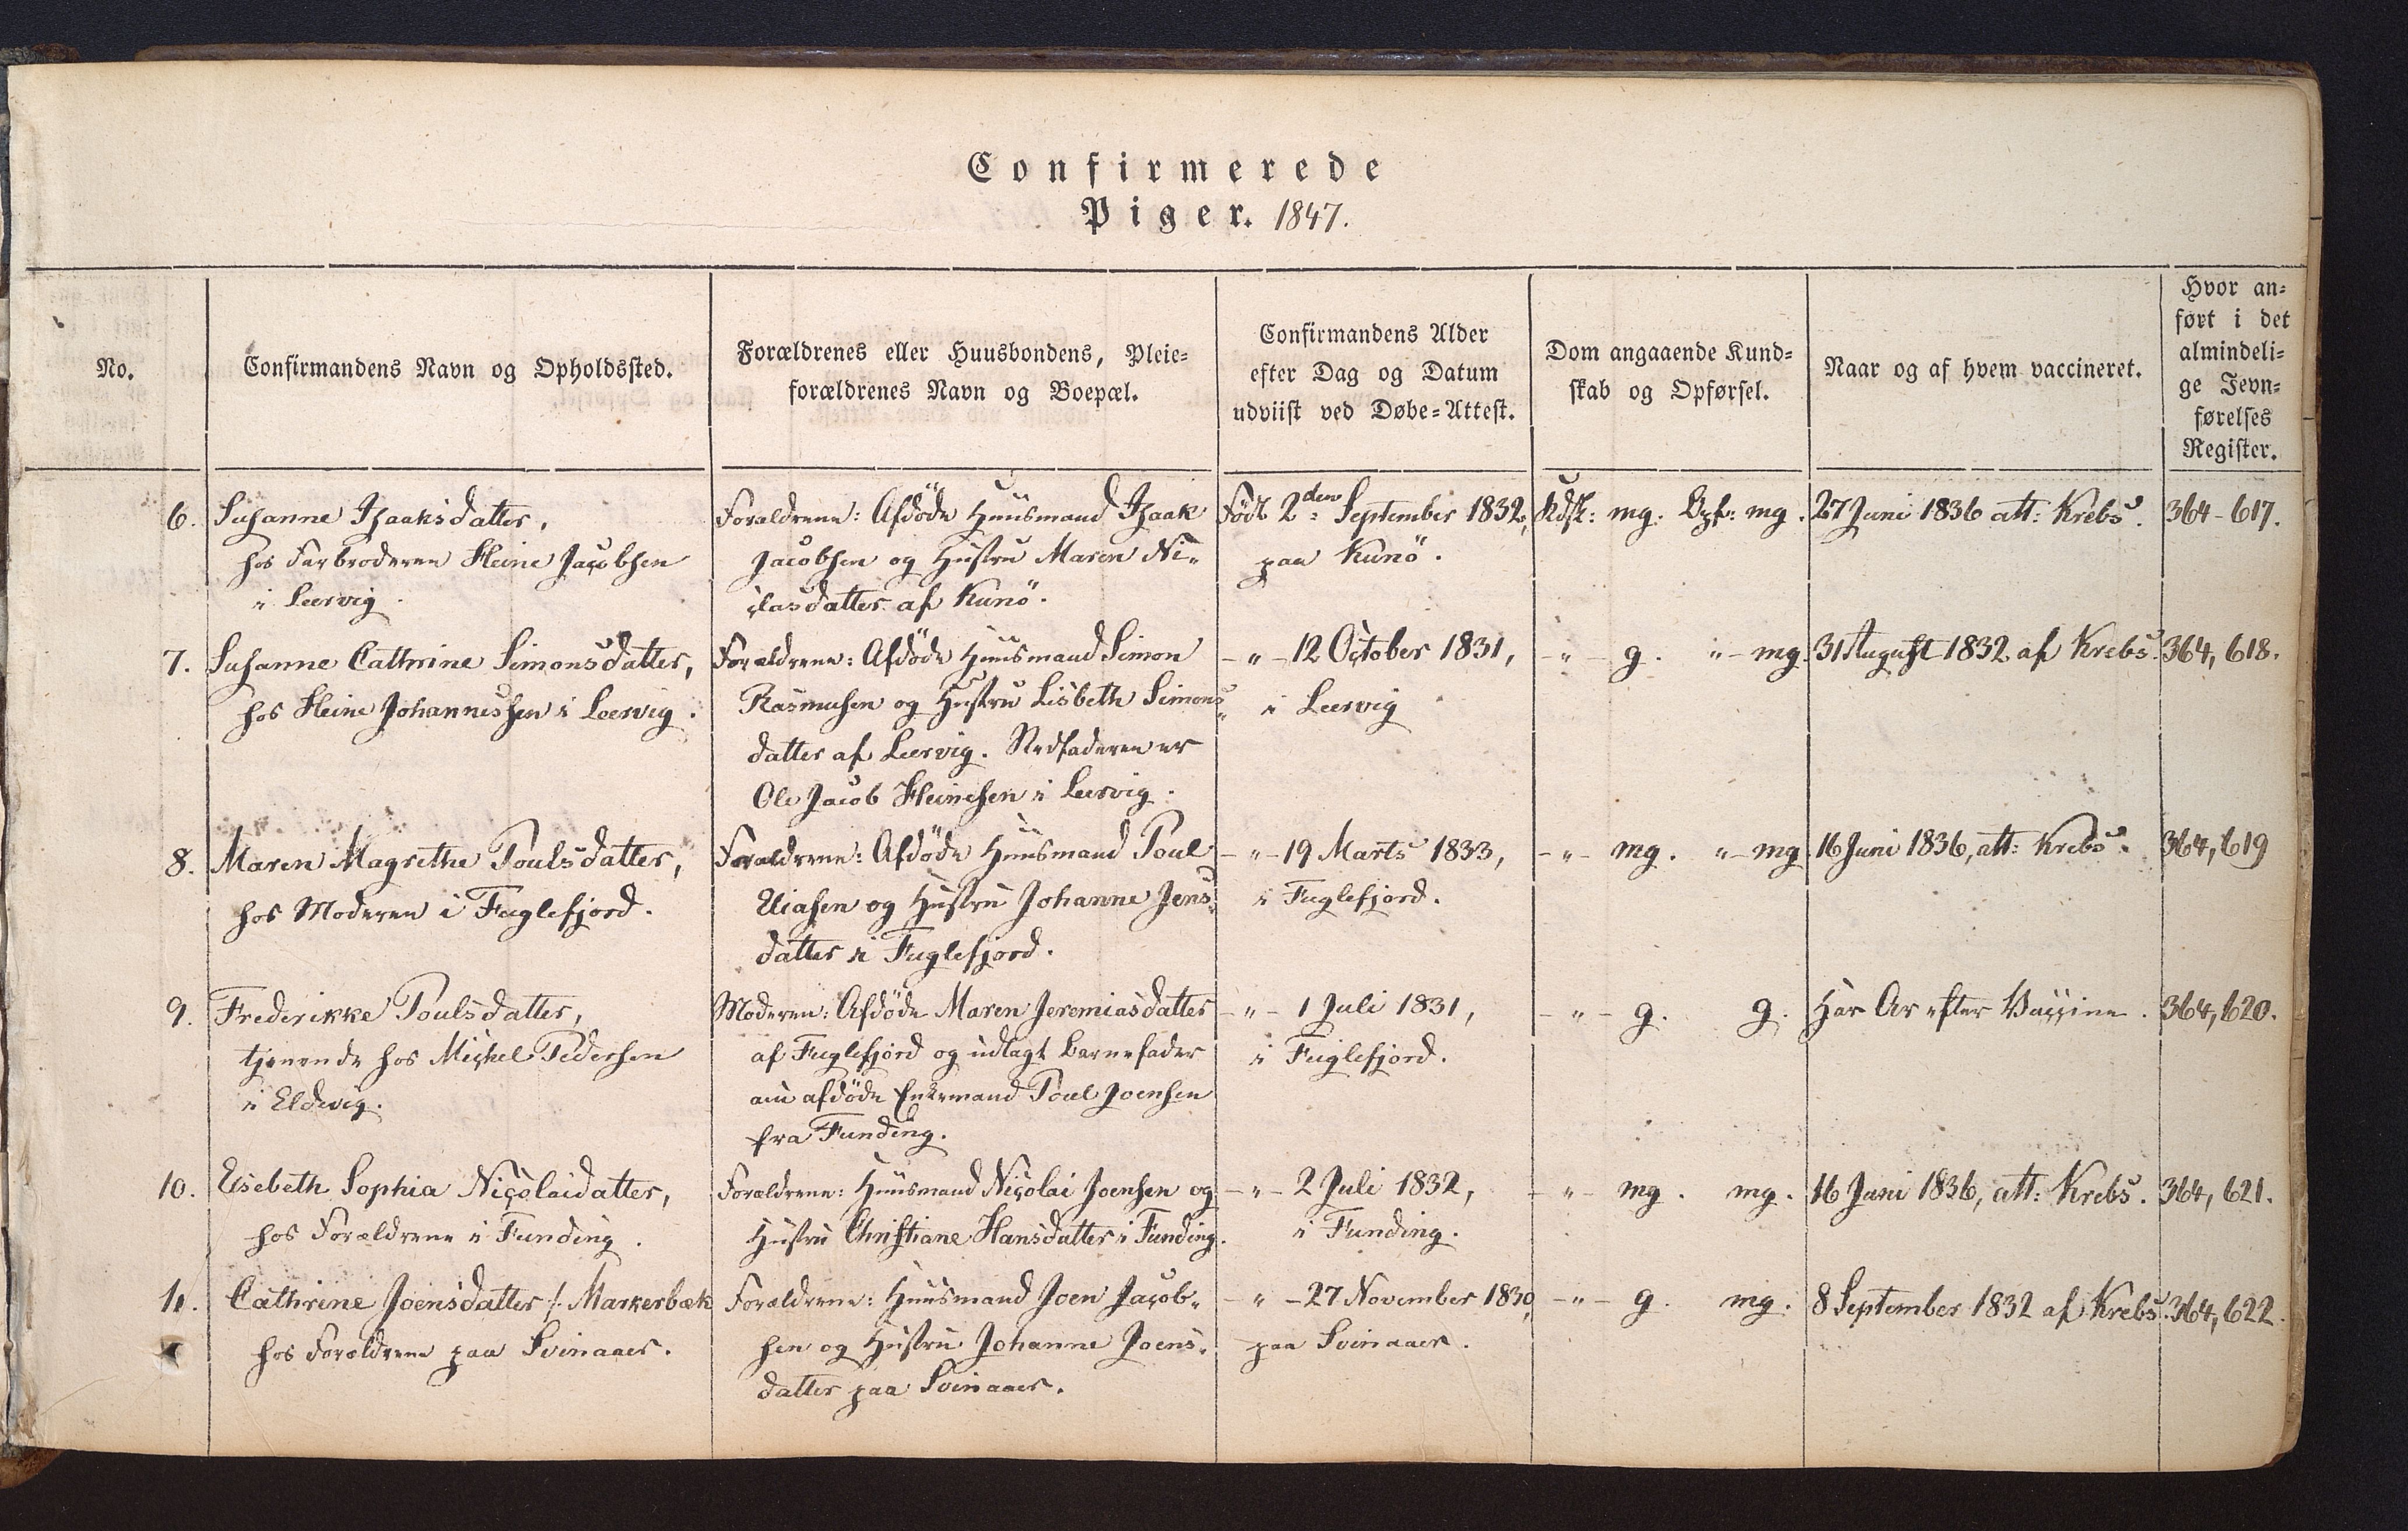 Confirmerede
Piger. 1847.
No.
Confirmandens Navn og Opholdssted.
Forældrenes eller Huusbondens, Pleie-
forældrenes Navn og Boepæl.
Confirmandens Alder
efter Dag og Datum
udviist ved Døbe-Attest.
Dom angaaende Kund-
skab og Opførsel.
Naar og af hvem vaccineret.
Hvor an-
ført i det
almindeli-
ge Jevn-
førelses
Register.
6.
Susanne Isaaksdatter,
hos Farbroderen Heine Jacobsen
i Leervig.
Forældrene: Afdöde Huusmand Isaak
Jacobsen og Hustru Maren Ni-
clasdatter af Kunö.
Född 2den September 1832,
paa Kunö.
Kdsk: mg. Opf: mg.
27 Juni 1836 att: Krebs.
364-617.
7.
Susanne Cathrine Simonsdatter,
hos Heine Johannessen i Leervig.
Forældrene: Afdöde Huusmand Simon
Rasmusen og Hustru Lisbeth Simons-
datter af Leervig. Stedfaderen er
Ole Jacob Heinesen i Leervig.
-"- 12 October 1831,
i Leervig
-"- g. "- mg.
31 August 1832 af Krebs.
364, 618.
8.
Maren Magrethe Poulsdatter,
hos Moderen i Fuglefjord.
Forældrene: Afdöde Huusmand Poul
Eliasen og Hustru Johanne Jens-
datter i Fuglefjord.
-"- 19 Marts 1833,
i Fuglefjord.
-"- mg. "- mg
16 Juni 1836, att: Krebs.
364, 619
9.
Frederikke Poulsdatter,
tjenende hos Michel Pedersen
i Eldevig.
Moderen: Afdöde Maren Jeremiasdatter
af Fuglefjord og udlagt Barnefader
am afdöde Enkemand Poul Joensen
fra Funding.
-"- 1 Juli 1831,
i Fuglefjord.
-"- g. g.
Har Ar efter Vaccine.
364, 620.
10.
Elsebeth Sophia Nicolaidatter,
hos Forældrene i Funding.
Forældrene: Huusmand Nicolai Joensen og
Hustru Christiane Hansdatter i Funding.
-"- 2 Juli 1832,
i Funding.
-"- mg. mg.
16 Juni 1836, att: Krebs.
364, 621.
11.
Cathrine Joensdatter /: Markerbæk
hos Forældrene paa Svinaaer.
Forældrene: Huusmand Joen Jacob-
sen og Hustru Johanne Joens-
datter paa Svinaaer.
-"- 27 November 1830,
paa Svinaaer.
-"- g. mg.
8 September 1832 af Krebs.
364, 622.